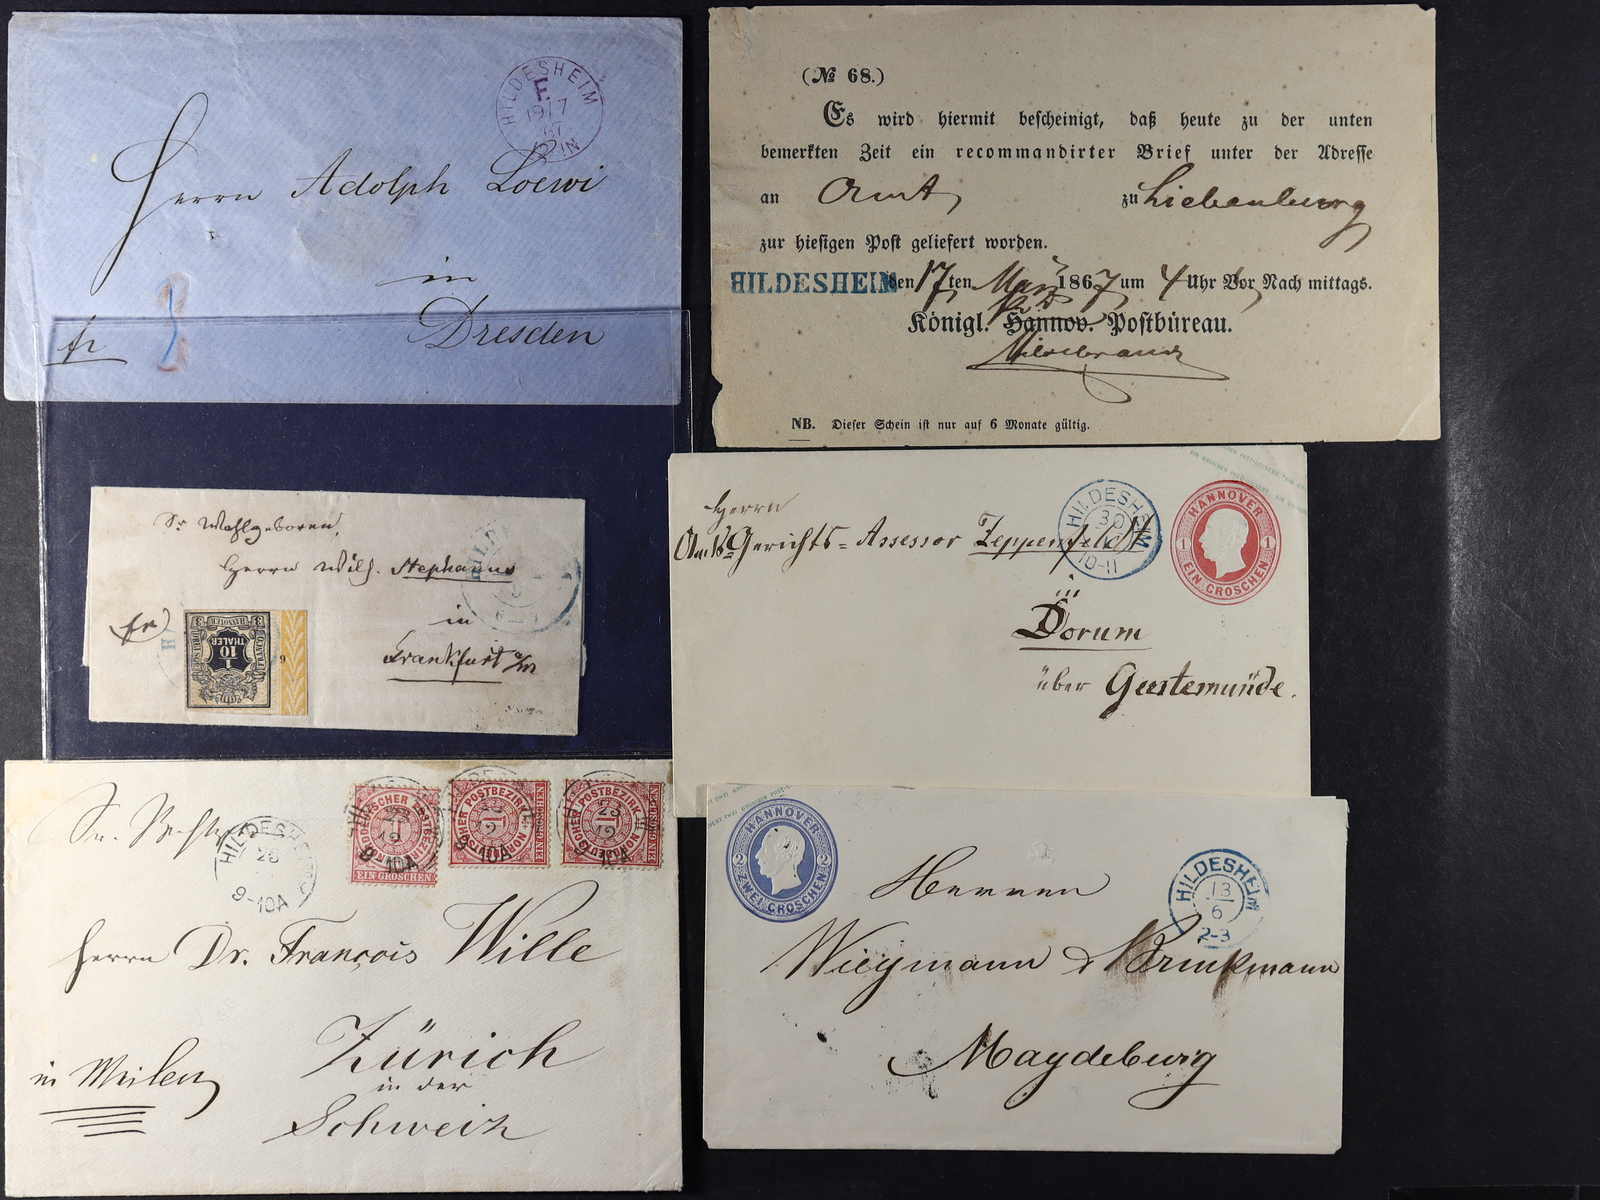 HILDESHEIM
Herrn Adolph Loewi
in
fr
Dresden
(№ 68.)
Es wird hiermit bescheinigt, daß heute zu der unten
bemerkten Zeit ein recommandirter Brief unter der Adresse
an Amt zu Liebenburg
zur hiesigen Post geliefert worden.
HILDESHEIM den 17ten März 1867 um 4 Uhr Vor Nach mittags.
Königl. Hannov. Postbüreau.
NB. Dieser Schein ist nur auf 6 Monate gültig.
Sr Wohlgeboren,
Herrn Wilh. Stephanus
in
fr
Frankfurt a/m
HANNOVER
1/10
THALER
FRANCO
9
Herrn
Amts Gerichts-Assessor Zeppenfeldt
in
Dorum
über Geestemünde.
HILDESHEIM
30
10-11
HANNOVER
1 1
EIN GROSCHEN
HILDESHEIM
23
9-10A
NORDDEUTSCHER POSTBEZIRK
1
EIN GROSCHEN
NORDDEUTSCHER POSTBEZIRK
1
EIN GROSCHEN
NORDDEUTSCHER POSTBEZIRK
1
EIN GROSCHEN
23
12
9-10A
Herrn Dr. François Wille
Zürich
in der
Schweiz
in Meilen
HANNOVER
2 2
ZWEI GROSCHEN
HILDESHEIM
13
6
2-3
Herren
Wiegmann & Brinkmann
Magdeburg